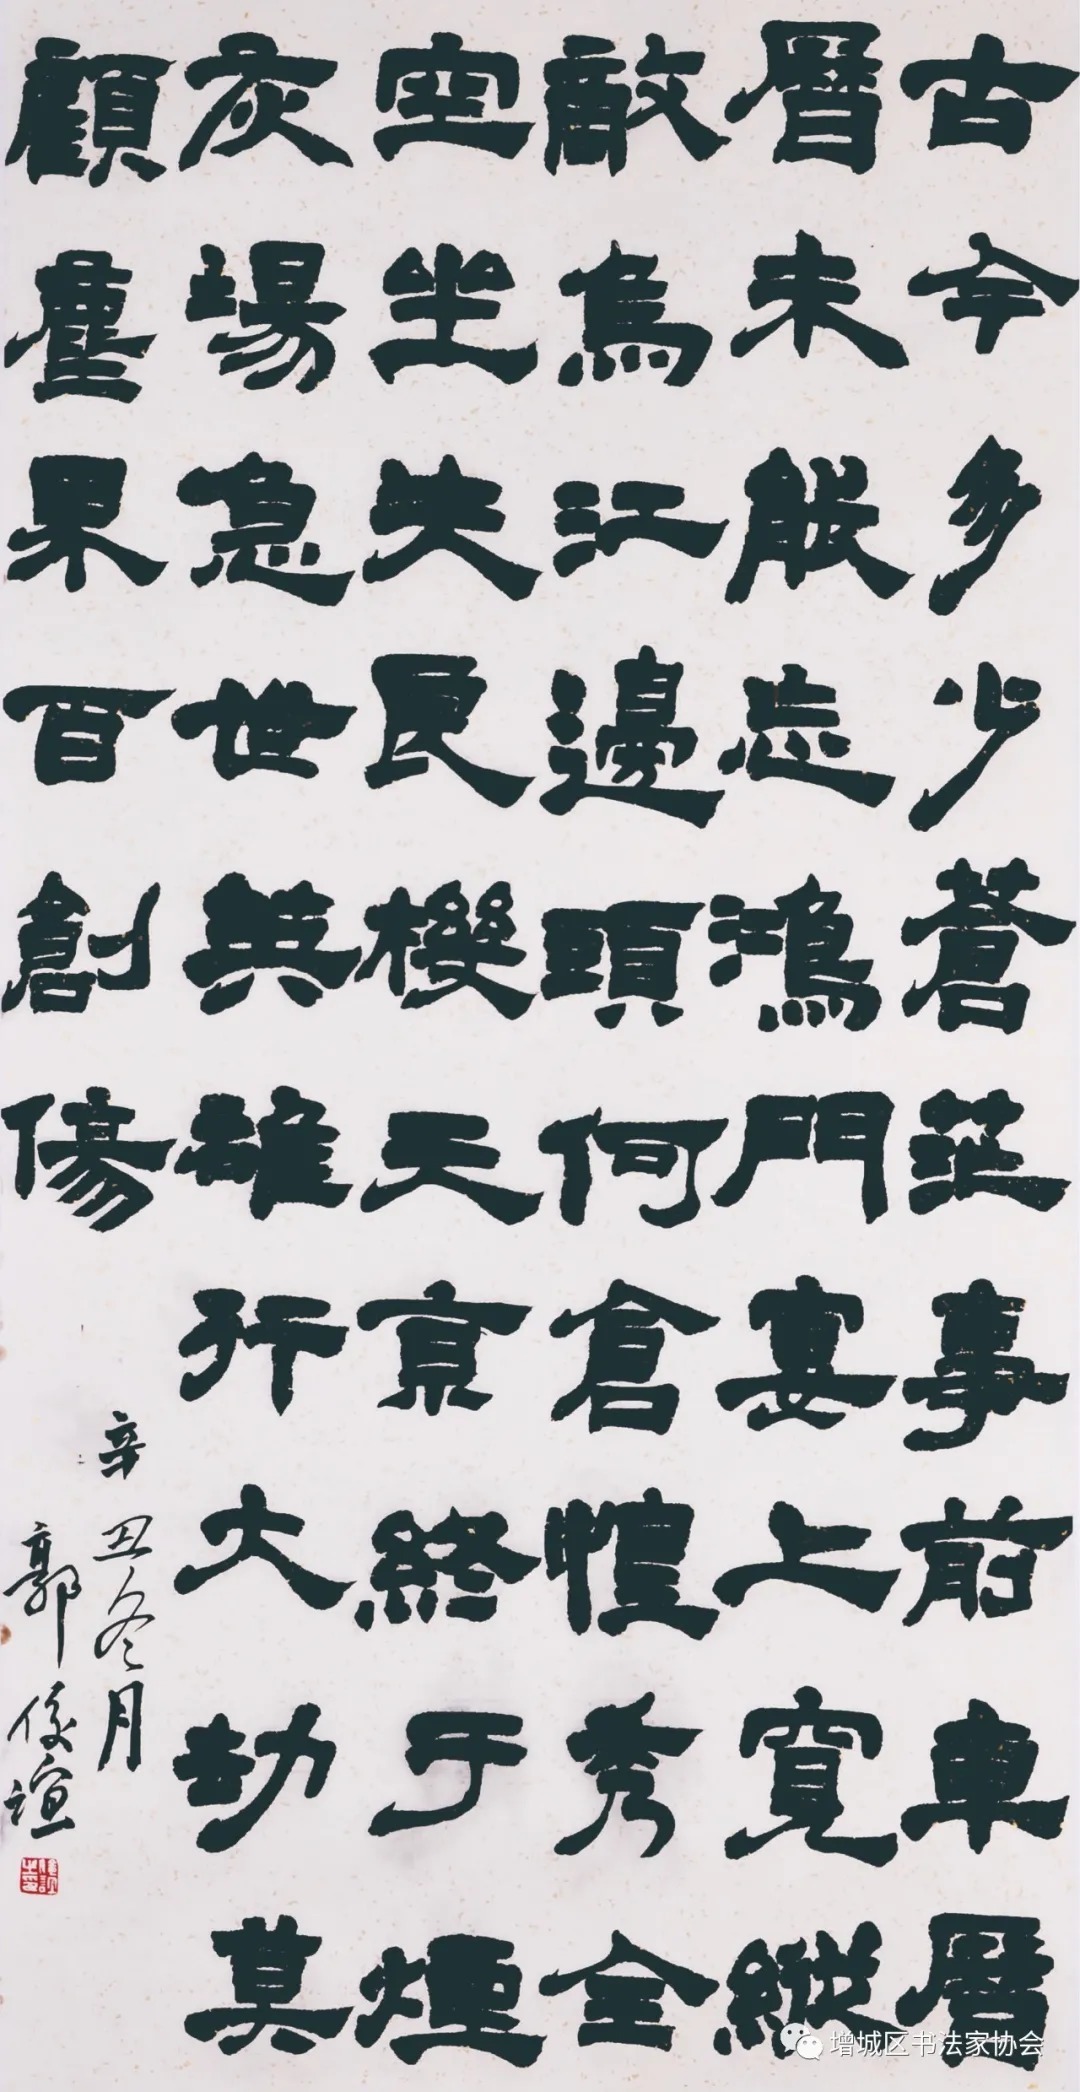 古今多少蒼茫事前車曆
曆未能忘鴻門宴上寬縱
敵烏江邊頭何倉惶秀全
空坐失良機天京終于煙
灰場急世英雄行大劫莫
顧塵果百創傷
辛丑冬月
郭俊谊
增城区书法家协会